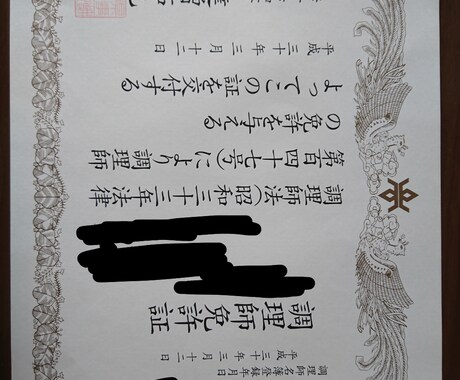 調理師名簿登録年月日
平成三十年三月十二日
調理師免許証
調理師法(昭和三十三年法律
第百四十七号)により調理師
の免許を与える
よってこの証を交付する
平成三十年三月十二日